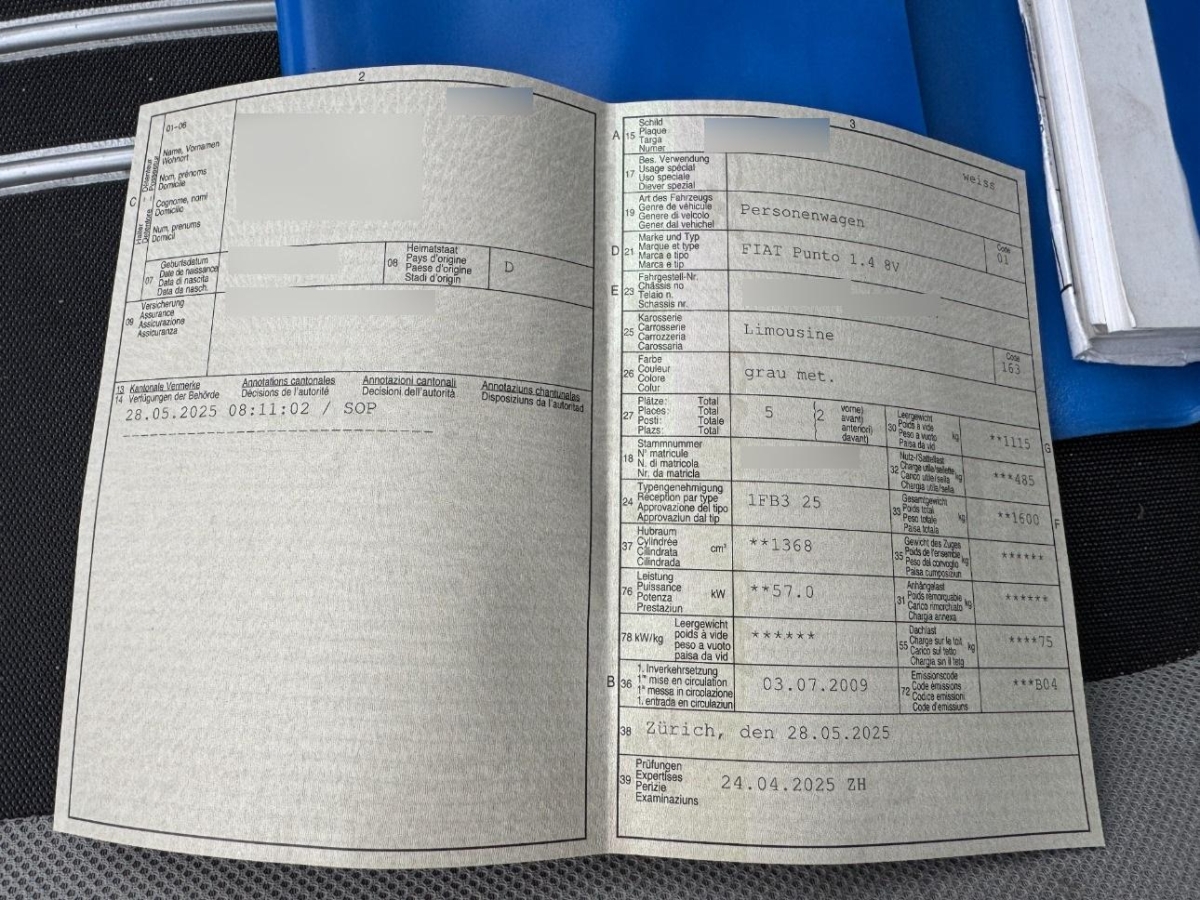 2
01-06
C
Halter
Détenteur
Name, Vornamen
Wohnort
Nom, prénoms
Domicile
Cognome, nomi
Domicilio
Num, prenums
Domicil
07
Geburtsdatum
Date de naissance
Data di nascita
Data da nasch.
08
Heimatstaat
Pays d'origine
Paese d'origine
Stadi d'origin
D
09
Versicherung
Assurance
Assicurazione
Assicuranza
13 Kantonale Vermerke Annotations cantonales Annotazioni cantonali Annotaziuns chantunalas
14 Verfügungen der Behörde Décisions de l'autorité Decisioni dell'autorità Disposiziuns da l'autoritad
28.05.2025 08:11:02 / SOP
3
A 15
Schild
Plaque
Targa
Numer
weiss
17
Bes. Verwendung
Usage spécial
Uso speciale
Diever spezial
19
Art des Fahrzeugs
Genre de véhicule
Genere di veicolo
Gener dal vehichel
Personenwagen
D 21
Marke und Typ
Marque et type
Marca e tipo
Marca e tip
FIAT Punto 1.4 8V
Code
01
E 23
Fahrgestell-Nr.
Châssis no
Telaio n.
Schassis nr.
25
Karosserie
Carrosserie
Carrozzeria
Carossaria
Limousine
26
Farbe
Couleur
Colore
Colur
grau met.
Code
163
27
Plätze: Total
Places: Total
Posti: Totale
Plazs: Total
5
(2
vorne)
avant)
anteriori)
davant)
30
Leergewicht
Poids à vide
Peso a vuoto
Paisa da vid
kg
**1115
G
18
Stammnummer
N° matricule
N. di matricola
Nr. da matricla
32
Nutz-/Sattellast
Charge utile/sellette
Carico utile/sella
Chargia utila/sella
kg
***485
24
Typengenehmigung
Réception par type
Approvazione del tipo
Approvaziun dal tip
1FB3 25
33
Gesamtgewicht
Poids total
Peso totale
Paisa totala
kg
**1600
F
37
Hubraum
Cylindrée
Cilindrata
Cilindrada
cm³
**1368
35
Gewicht des Zuges
Poids de l'ensemble
Peso del convoglio
Paisa cumposiziun
kg
******
76
Leistung
Puissance
Potenza
Prestaziun
kW
**57.0
31
Anhängelast
Poids remorquable
Carico rimorchiato
Chargia annexa
kg
******
78 kW/kg
Leergewicht
poids à vide
peso a vuoto
paisa da vid
******
55
Dachlast
Charge sur le toit
Carico sul tetto
Chargia sin il tetg
kg
****75
B 36
1. Inverkehrsetzung
1re mise en circulation
1a messa in circolazione
1. entrada en circulaziun
03.07.2009
72
Emissionscode
Code émissions
Codice emissioni
Code d'emissiuns
***B04
38
Zürich, den 28.05.2025
39
Prüfungen
Expertises
Perizie
Examinaziuns
24.04.2025 ZH